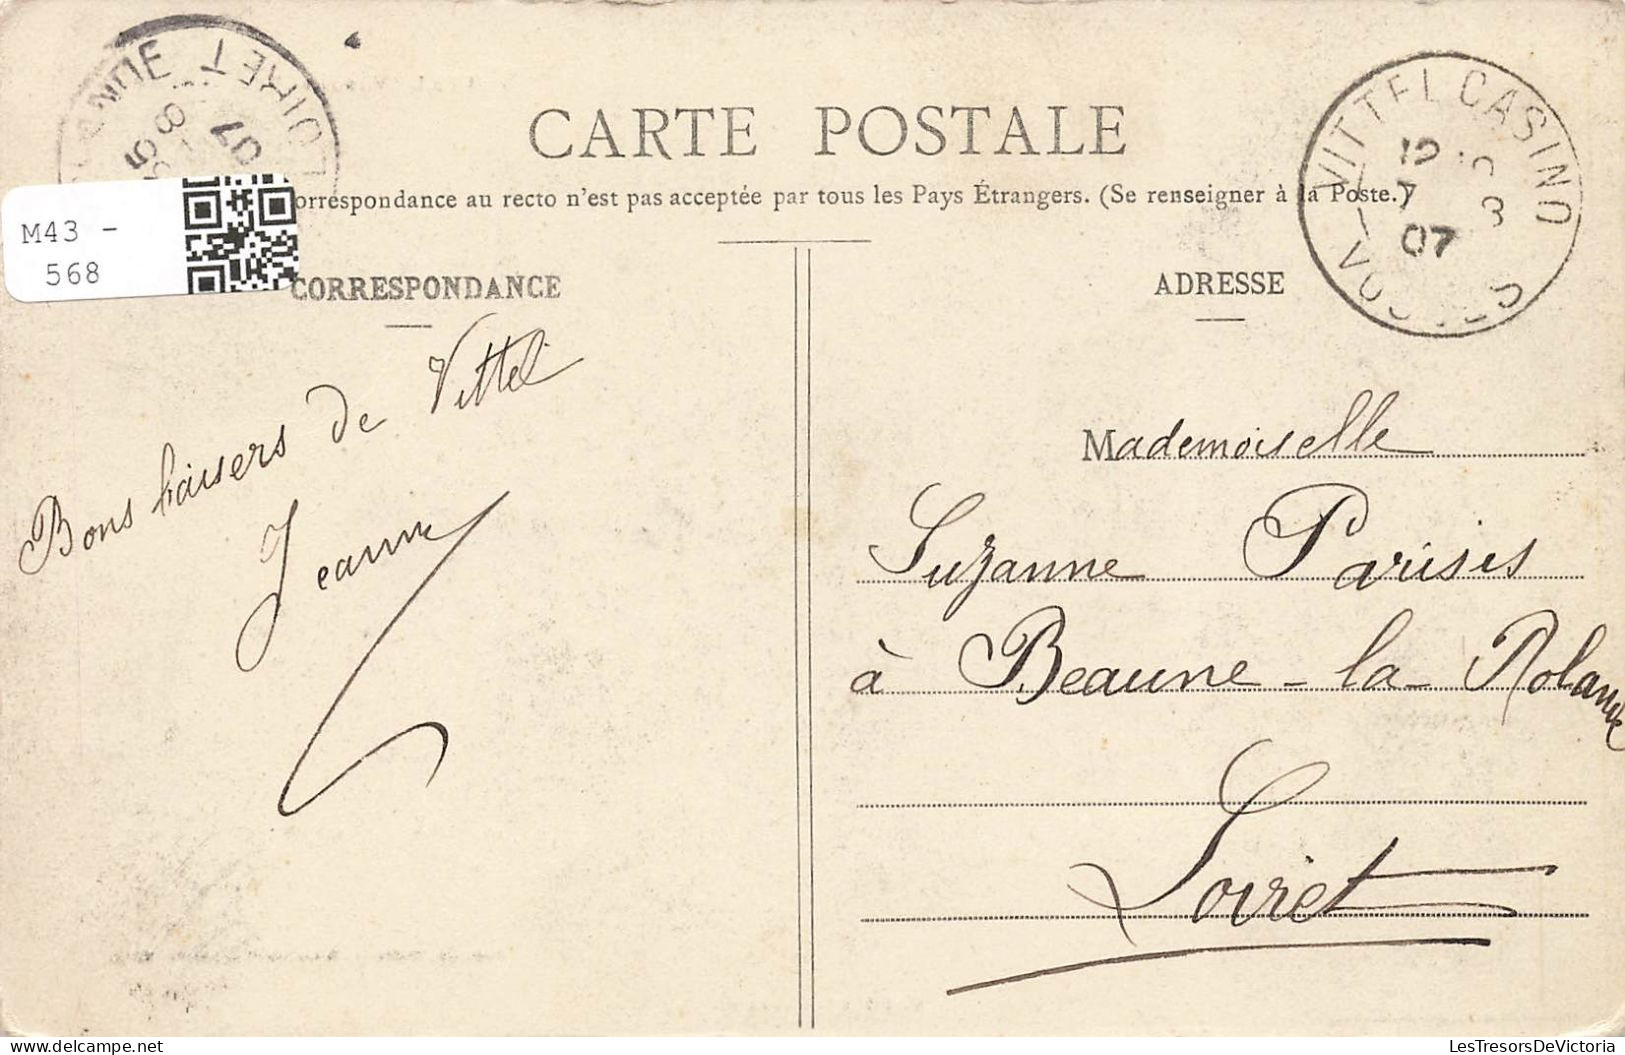 LOIRET
07
CARTE POSTALE
VITTEL CASINO
07
VOSGES
orrespondance au recto n'est pas acceptée par tous les Pays Étrangers. (Se renseigner à la Poste.)
M43 -
568
CORRESPONDANCE
ADRESSE
Bons baisers de Vittel
Jeanne
Mademoiselle
Suzanne Parisis
à Beaune-la-Rolande
Loiret
LesTresorsDeVictoria